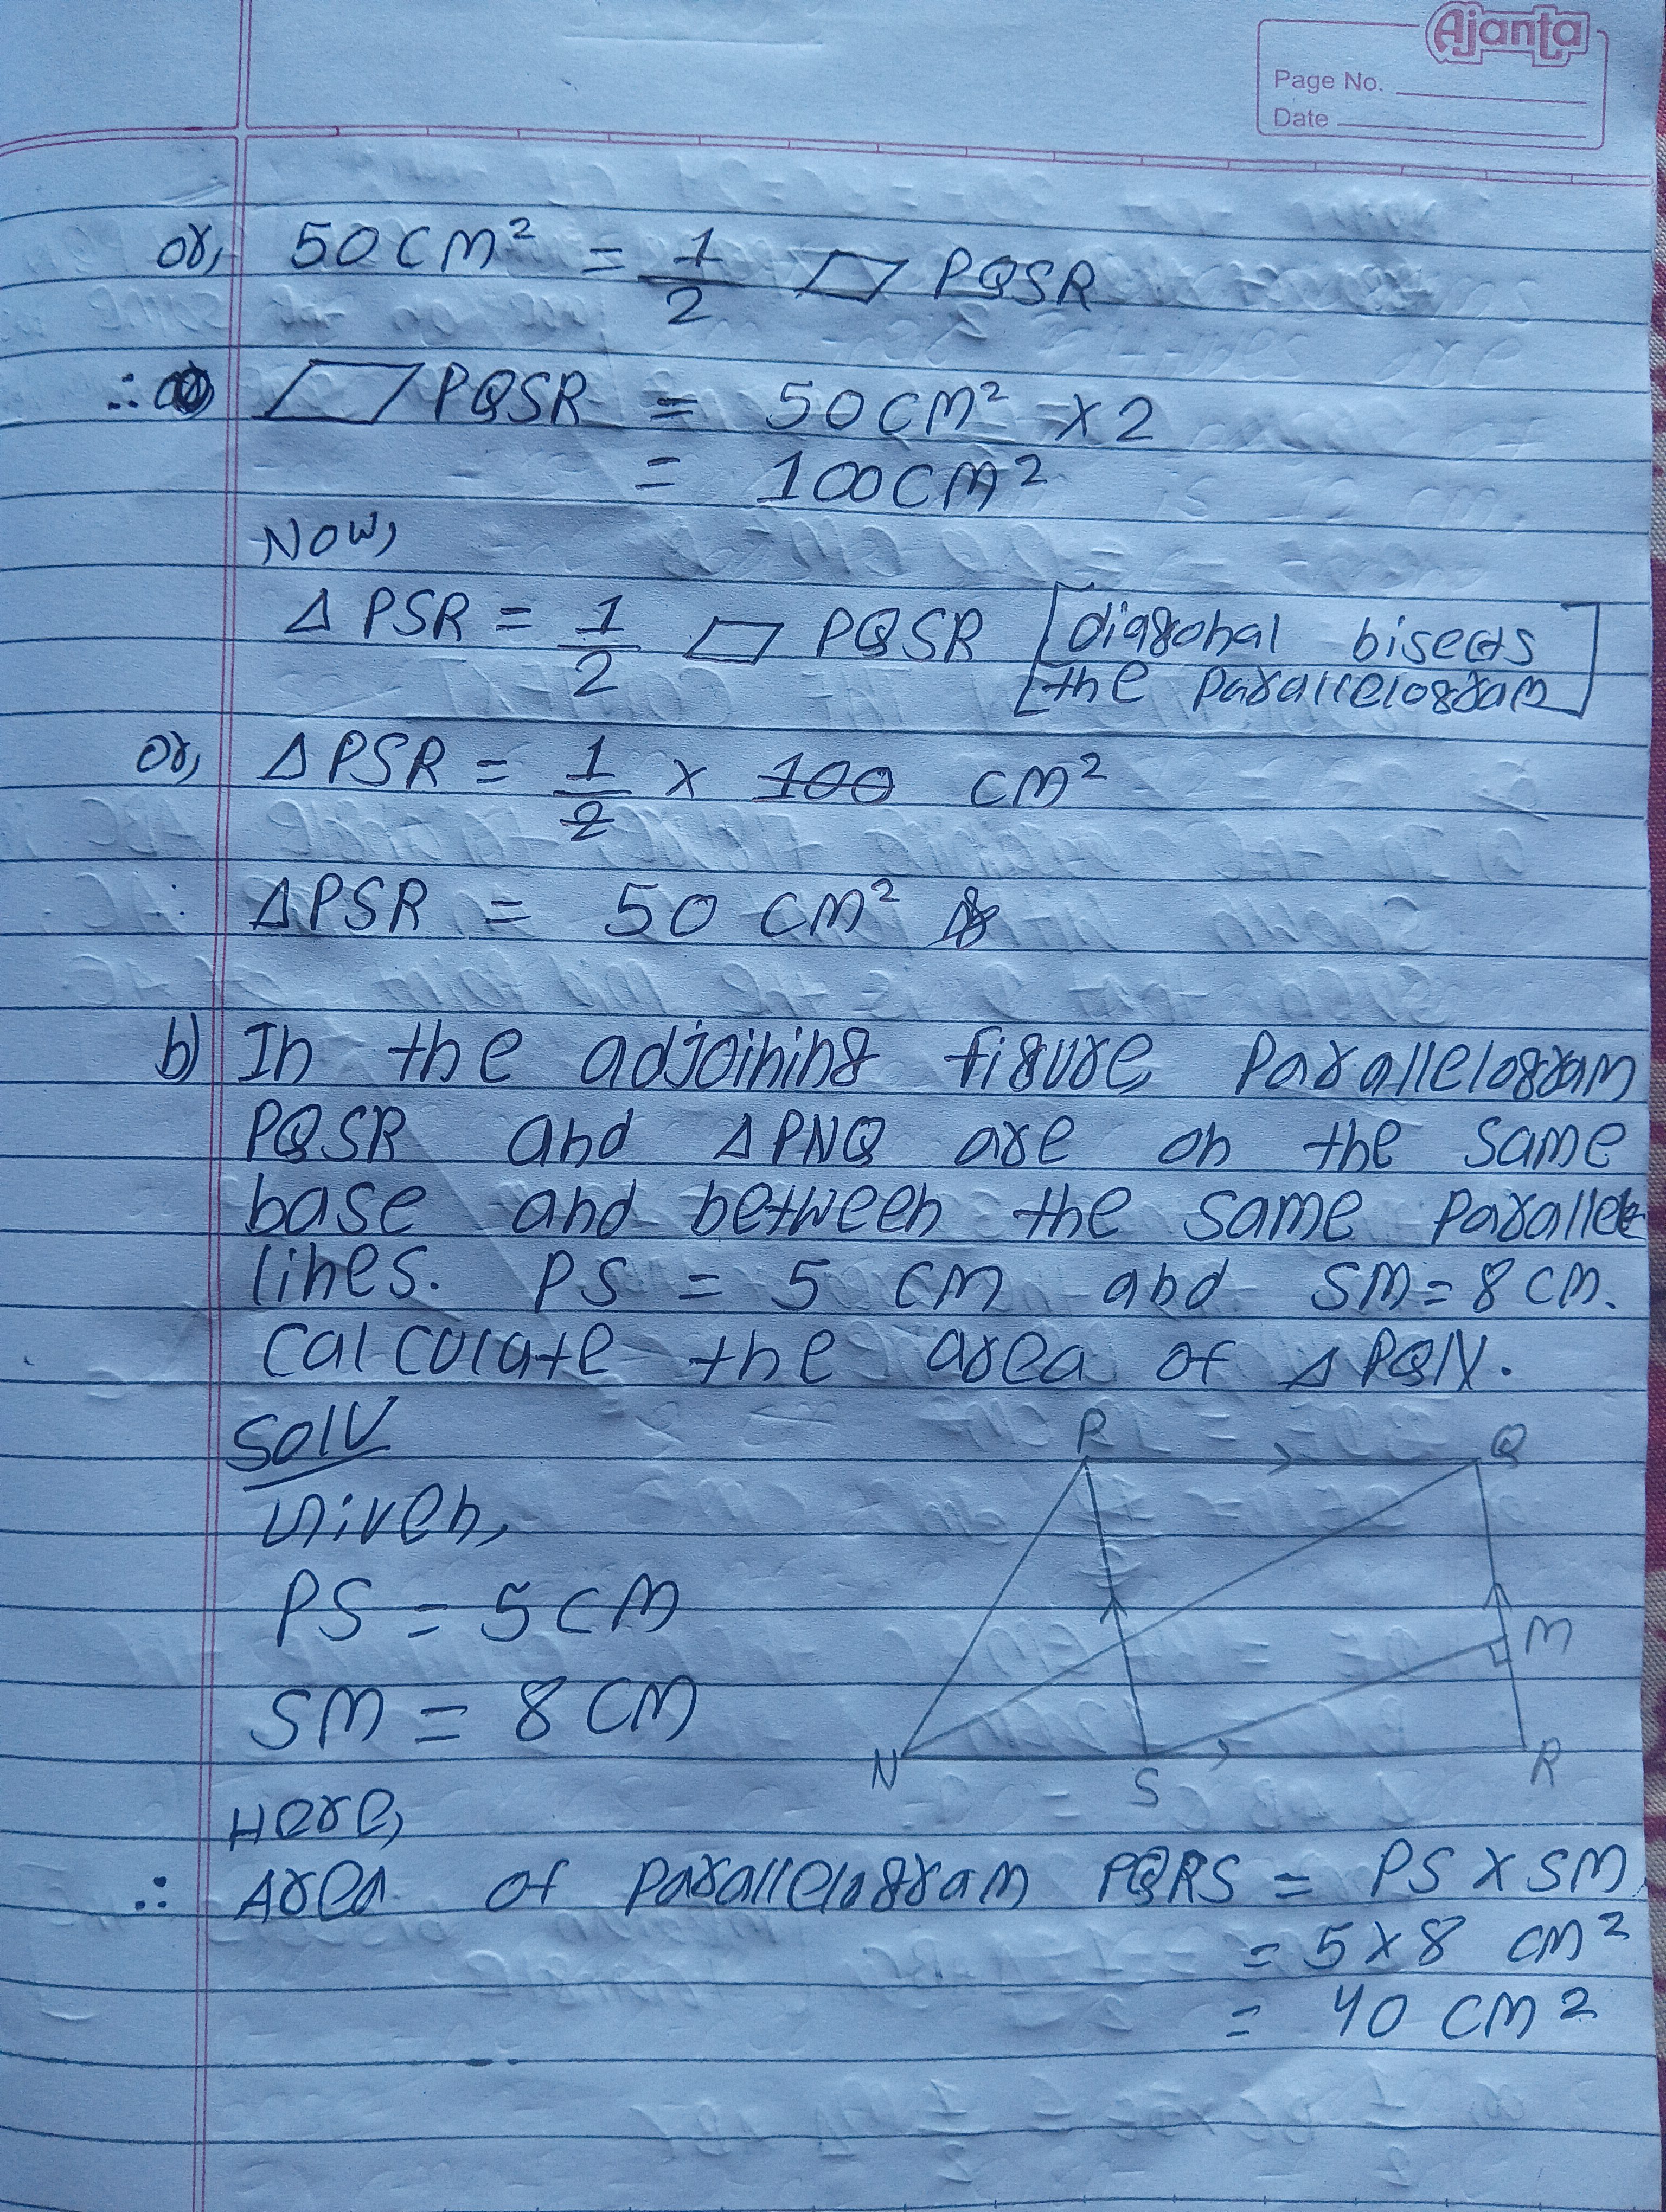 Ajanta
Page No.
Date
or, 50 cm² = 1/2 ▱ PQSR
∴ ▱ PQSR = 50 cm² × 2
= 100 cm²
Now,
Δ PSR = 1/2 ▱ PQSR [diagonal bisects
the parallelogram]
or, Δ PSR = 1/2 × 100 cm²
∴ Δ PSR = 50 cm²
b) In the adjoining figure, parallelogram
PQSR and Δ PNQ are on the same
base and between the same parallel
lines. PS = 5 cm and SM = 8 cm.
Calculate the area of Δ PQN.
Solⁿ
Given,
PS = 5 cm
SM = 8 cm
P
Q
M
N
S
R
Here,
∴ Area of parallelogram PQRS = PS × SM
= 5 × 8 cm²
= 40 cm²